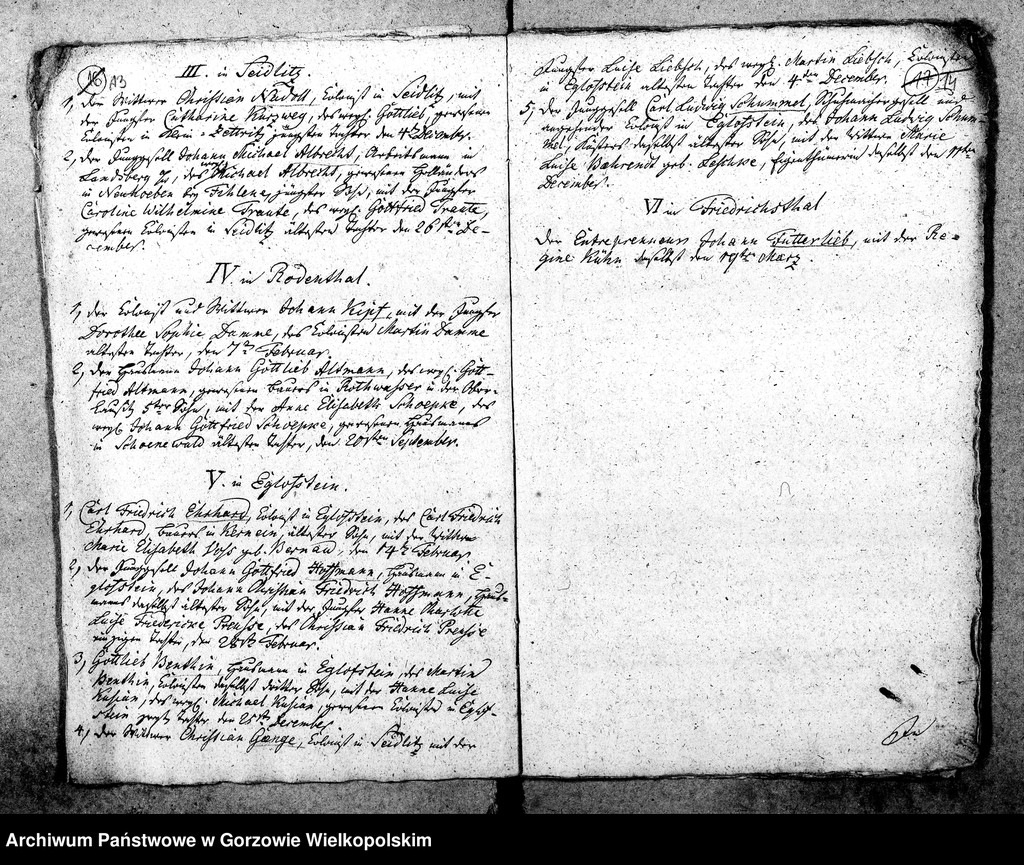 16 13
III. in Seidlitz.
1, der Wittwer Christian Neudorf, Colonist in Seidlitz, mit
der Jungfer Catharine Kurzweg, des weyl. Gottlieb, gewesenen
Colonisten in Klein-Zettritz jüngsten Tochter den 4ten December.
2, der Junggesell Johann Michael Albrecht, Arbeitsmann in
Landsberg a/W, des weyl. Michael Albrecht, gewesenen Holländers
in Neuhoeben bey Filehne, jüngster Sohn, mit der Jungfer
Caroline Wilhelmine Traute, des weyl. Gottfried Traute,
gewesenen Colonisten in Seidlitz ältesten Tochter den 26sten De-
cember.
IV. in Rodenthal.
1, der Colonist und Wittwer Johann Kipf, mit der Jungfer
Dorothee Sophie Damme, des Colonisten Martin Damme
ältesten Tochter, den 7ten Februar.
2, der Hausmann Johann Gottlieb Altmann, des weyl. Gott-
fried Altmann, gewesenen Bauers in Rothwasser in der Ober-
Lausitz 5ter Sohn, mit der Anne Elisabeth Schoepke, des
weyl. Johann Gottfried Schoepke, gewesenen Hausmanns
in Schoenewald ältesten Tochter, den 20sten September.
V. in Eglofstein.
1, Carl Friedrich Ehrhard, Colonist in Eglofstein, des Carl Friedrich
Ehrhard, Bauers in Kernein, ältester Sohn, mit der Wittwe
Marie Elisabeth Voss geb. Bernau, den 14ten Februar
2, der Junggesell Johann Gottfried Hoffmann, Hausmann in E-
glofstein, des Johann Christian Friedrich Hoffmann, Haus-
manns daselbst ältester Sohn, mit der Jungfer Hanne Charlotte
Luise Friedericke Preusse, des Christian Friedrich Preusse
einzigen Tochter, den 28sten Februar.
3, Gottlieb Benthin, Hausmann in Eglofstein, des Martin
Benthin, Colonisten daselbst dritter Sohn, mit der Hanne Luise
Kusian, des weyl. Michael Kusian, gewesenen Colonisten in Eglof-
stein Tochter den 25sten December
4, der Wittwer Christian Gänge, Colonist in Seidlitz mit der
17 14
Jungfer Luise Liebsch, des weyl. Martin Liebsch, Colonisten
in Eglofstein ältesten Tochter den 4ten December.
5, der Junggesell Carl Ludwig Schummel, Schuhmachergesell und
angehender Colonist in Eglofstein, des Johann Ludwig Schum-
mel, Küsters daselbst ältester Sohn, mit der Wittwe Marie
Luise Bahrendt geb. Leschke, Eigenthümerin daselbst den 11ten
December.
VI in Friedrichsthal
Der Entreprenneur Johann Futterlieb, mit der Re-
gine Kühn daselbst den 19ten März.
Archiwum Państwowe w Gorzowie Wielkopolskim